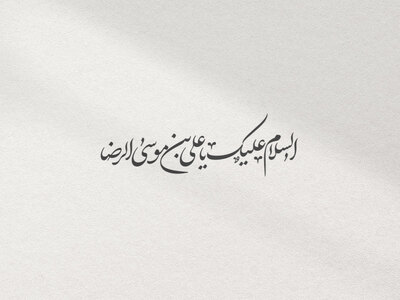 السلام علیک یا علی بن موسی الرضا